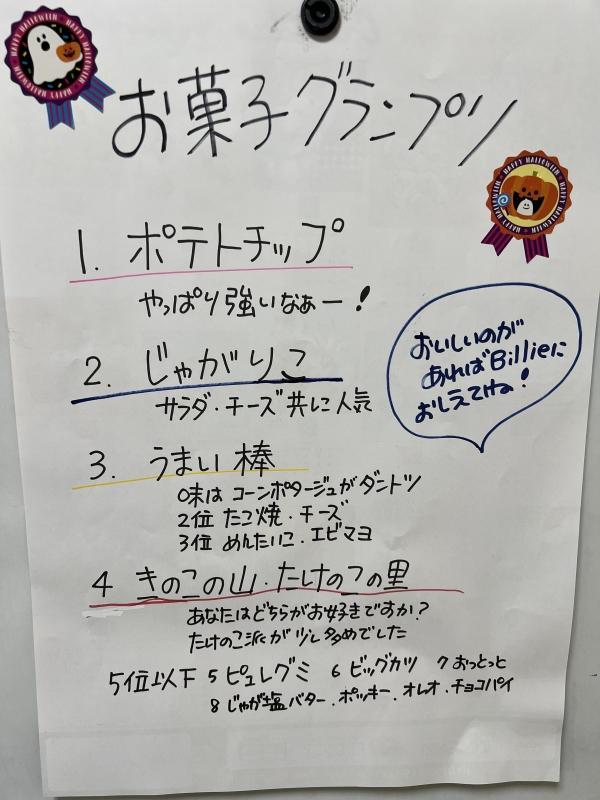 HAPPY HALLOWEEN
HAPPY HALLOWEEN
お菓子グランプリ
HAPPY HALLOWEEN
HAPPY HALLOWEEN
1. ポテトチップ
やっぱり強いなぁー!
2. じゃがりこ
サラダ・チーズ共に人気
おいしいのが
あればBillieに
おしえてね!
3. うまい棒
味は コーンポタージュがダントツ
2位 たこ焼・チーズ
3位 めんたいこ・エビマヨ
4 きのこの山・たけのこの里
あなたはどちらがお好きですか?
たけのこ派が少し多めでした
5位以下 5 ピュレグミ 6 ビッグカツ 7 おっとっと
8 じゃが塩バター・ポッキー・オレオ・チョコパイ